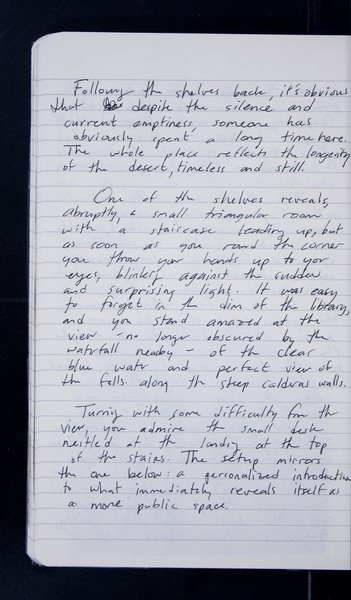 Following the shelves back, it's obvious
that despite the silence and
current emptiness, someone has
obviously spent a long time here.
The whole place reflects the longevity
of the desert, timeless and still.
One of the shelves reveals,
abruptly, a small triangular room
with a staircase leading up, but
as soon as you round the corner
you throw your hands up to your
eyes, blinking against the sudden
and surprising light. It was easy
to forget in the dim of the library,
and you stand amazed at the
view - no longer obscured by the
waterfall nearby - of the clear
blue water and perfect view of
the falls along the steep calderas walls.
Turning with some difficulty from the
view, you admire the small desk
nestled at the landing at the top
of the stairs. The setup mirrors
the one below: a personalized introduction
to what immediately reveals itself as
a more public space.